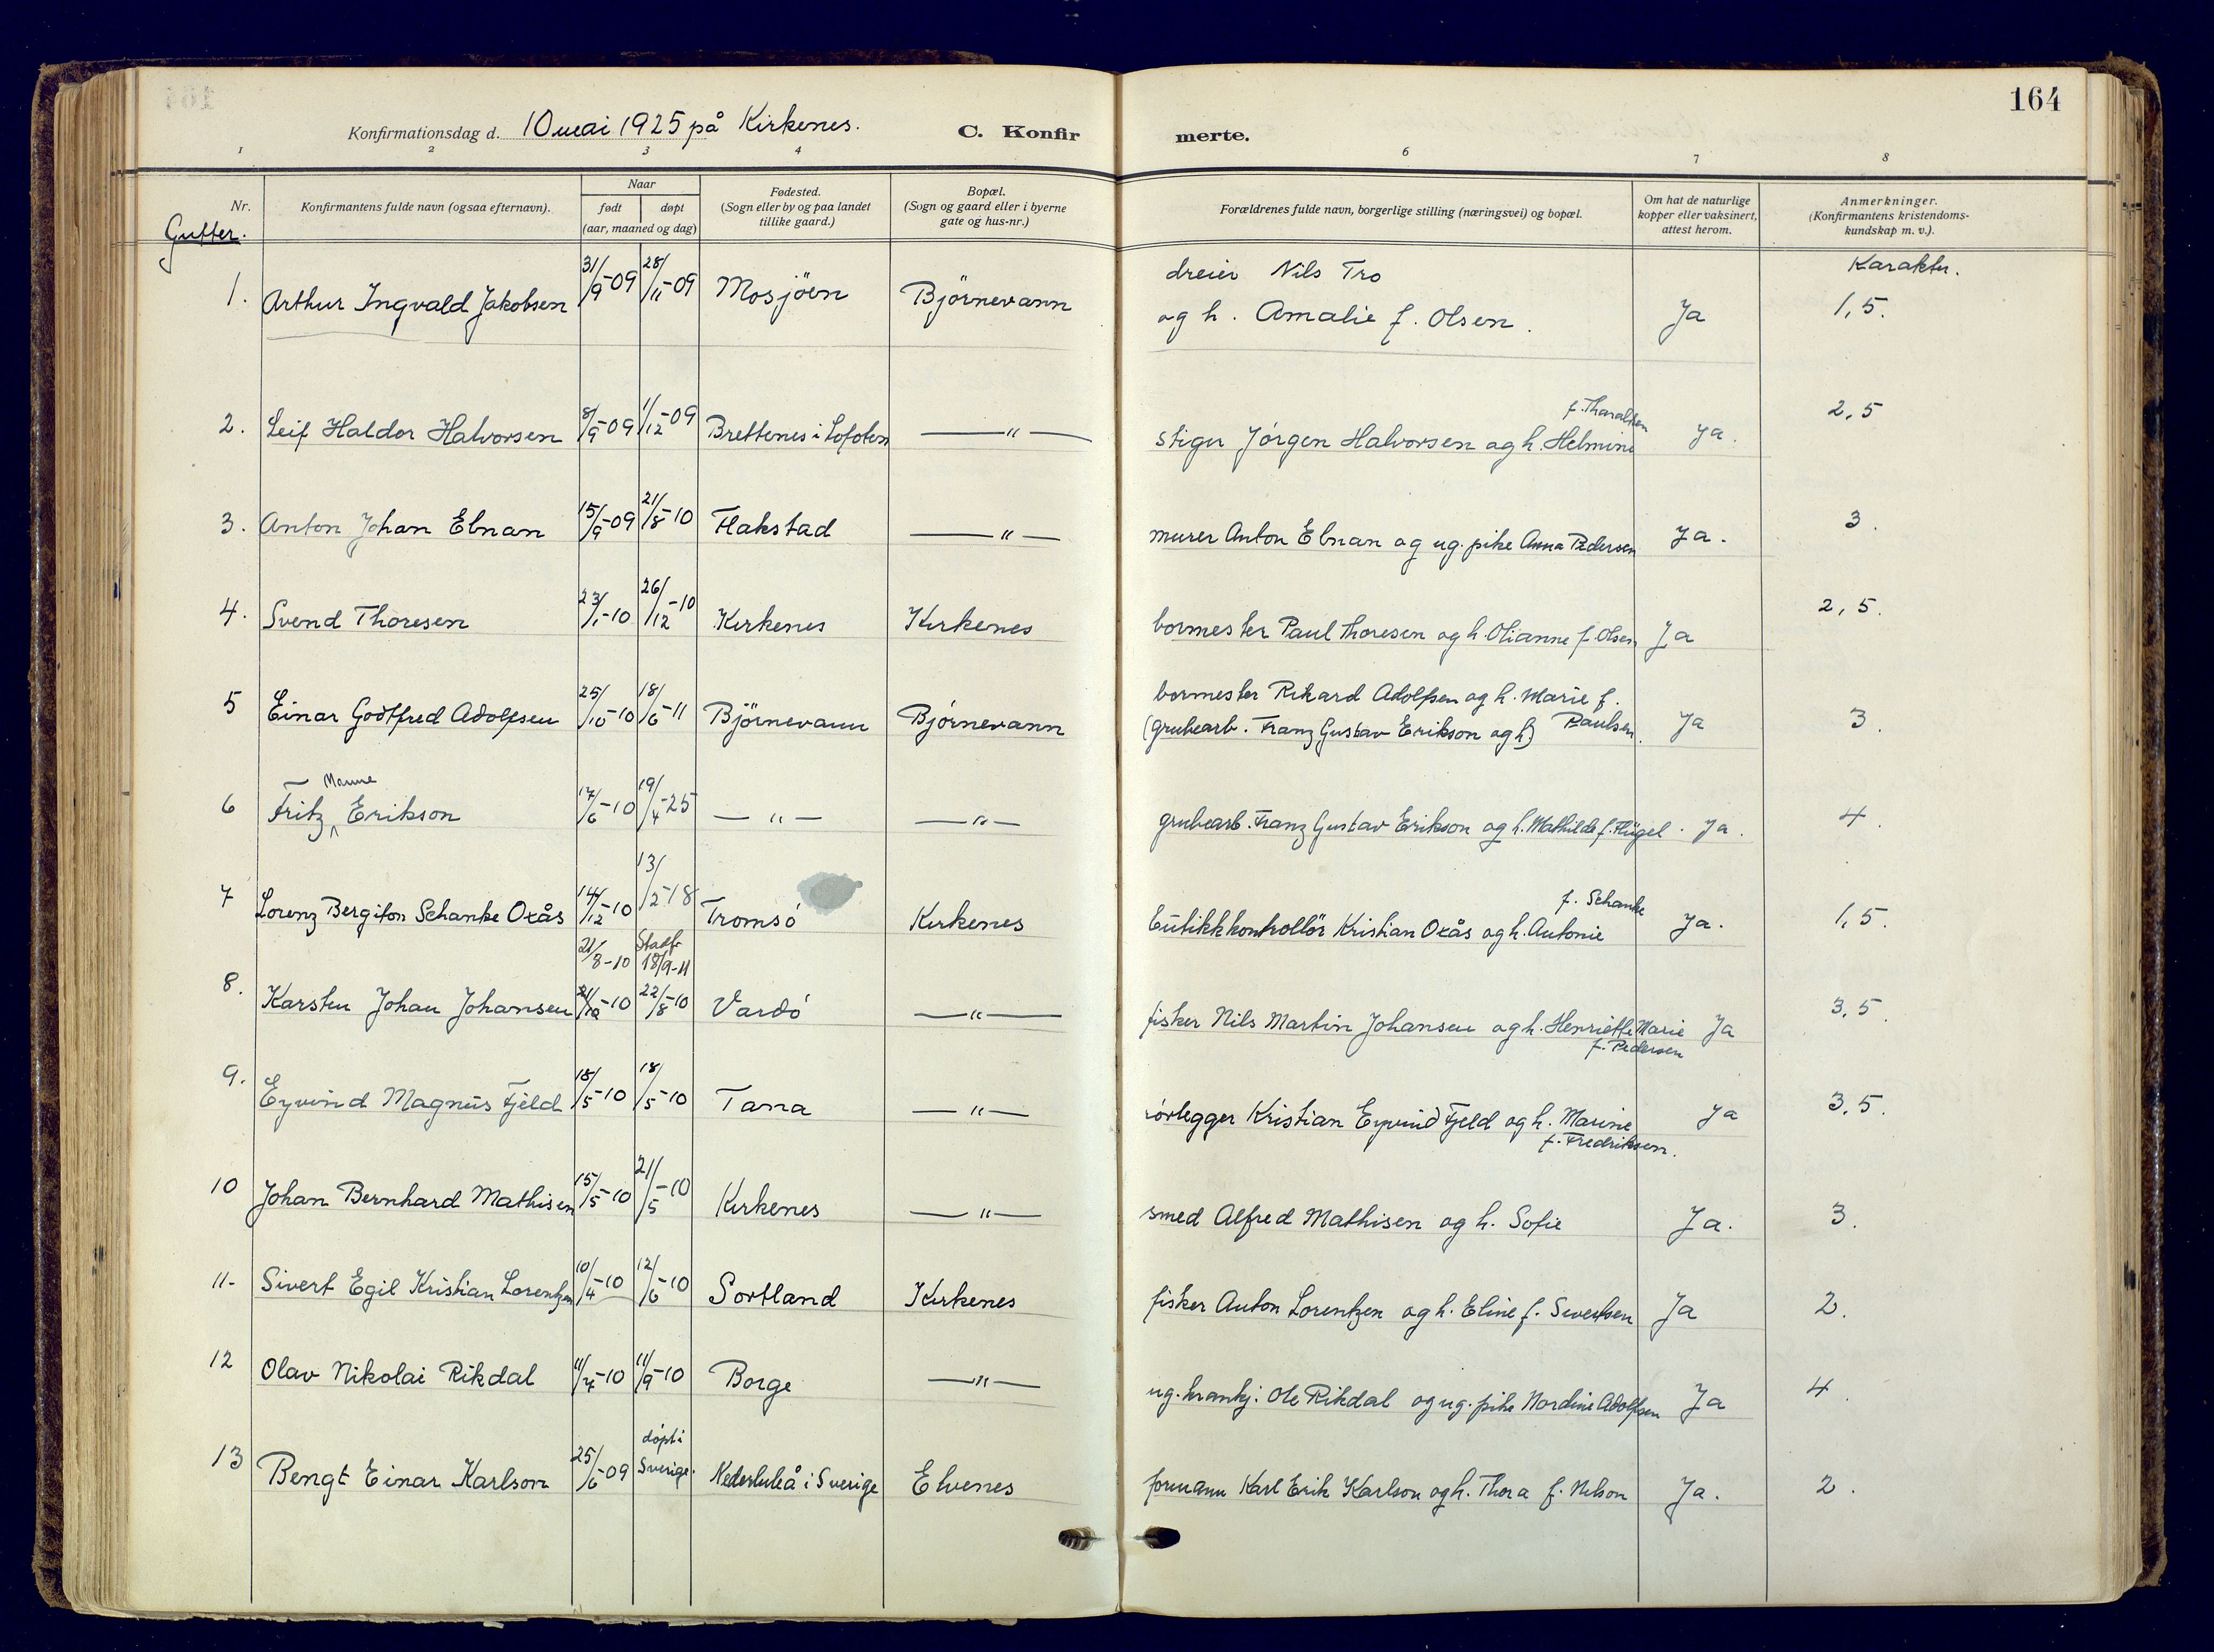 164
Konfirmationsdag d. 10 mai 1925 på Kirkenes.
C. Konfirmerte.
1 2 3 4 6 7 8
Nr. Konfirmantens fulde navn (ogsaa efternavn). Naar født døpt (aar, maaned og dag) Fødested. (Sogn eller by og paa landet tillike gaard.) Bopæl. (Sogn og gaard eller i byerne gate og hus-nr.) Forældrenes fulde navn, borgerlige stilling (næringsvei) og bopæl. Om hat de naturlige kopper eller vaksinert, attest herom. Anmerkninger. (Konfirmantens kristendoms-kundskap m. v.).
Gutter.
Karakter.
1. Arthur Ingvald Jakobsen 31/9-09 28/11-09 Mosjöen Björnevann dreier Nils Tro
og h. Amalie f. Olsen. Ja 1,5.
2. Leif Haldor Halvorsen 8/9-09 1/12-09 Brettenes i Lofoten —"— stiger Jörgen Halvorsen og h. Helmine f. Tharaldsen Ja. 2,5
3. Anton Johan Ebnan 15/9-09 21/8-10 Flakstad —"— murer Anton Ebnan og ug. pike Anna Pedersen Ja. 3.
4. Svend Thoresen 23/1-10 26/12-10 Kirkenes Kirkenes bormester Paul Thoresen og h. Olianne f. Olsen Ja 2,5.
5 Einar Godtfred Adolfsen 25/10-10 18/6-11 Björnevann Björnevann bormester Rikard Adolfsen og h. Marie f. Paulsen.
(grubearb. Franz Gustav Erikson og h) Ja 3.
6 Fritz Manne Erikson 17/6-10 19/4-25 —"— —"— grubearb. Franz Gustav Erikson og h. Mathilde f. Flügel. Ja. 4.
7 Lorenz Bergiton Schanke Oxås 14/12-10 13/2-18 Tromsö Kirkenes butikkkontrollör Kristian Oxås og h. Antonie f. Schanke Ja. 1,5.
21/8-10 Stadf. 18/9-11
8. Karsten Johan Johansen 21/10-10 22/8-10 Vardö —"— fisker Nils Martin Johansen og h. Henriette Marie f. Pedersen Ja 3,5.
9. Eyvind Magnus Fjeld 18/5-10 18/5-10 Tana —"— rörlegger Kristian Eyvind Fjeld og h. Marine f. Fredriksen. Ja 3,5.
10 Johan Bernhard Mathisen 15/5-10 21/5-10 Kirkenes —"— smed Alfred Mathisen og h. Sofie Ja. 3.
11- Sivert Egil Kristian Lorentzen 10/4-10 12/6-10 Sortland Kirkenes fisker Anton Lorentzen og h. Eline f. Sivertsen Ja 2.
12 Olav Nikolai Rikdal 11/7-10 11/9-10 Borge —"— ug. krankj: Ole Rikdal og ug. pike Nordine Adolfsen Ja 4.
13 Bengt Einar Karlson 25/6-09 döpt i Sverige. Nederluleå i Sverige Elvenes formann Karl Erik Karlson og h. Thora f. Nilson Ja. 2.